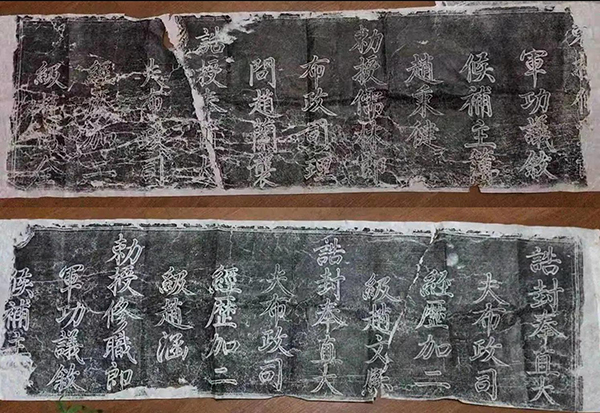 軍功議敘
候補主簿
趙秉健
勅授儒林郎
布政司理
問趙蘭
誥授奉直大
夫布政司
經歷加二
級
誥封奉直大
夫布政司
經歷加二
級趙文
誥封奉直大
夫布政司
經歷加二
級趙涵
勅授修職郎
軍功議敘
候補主